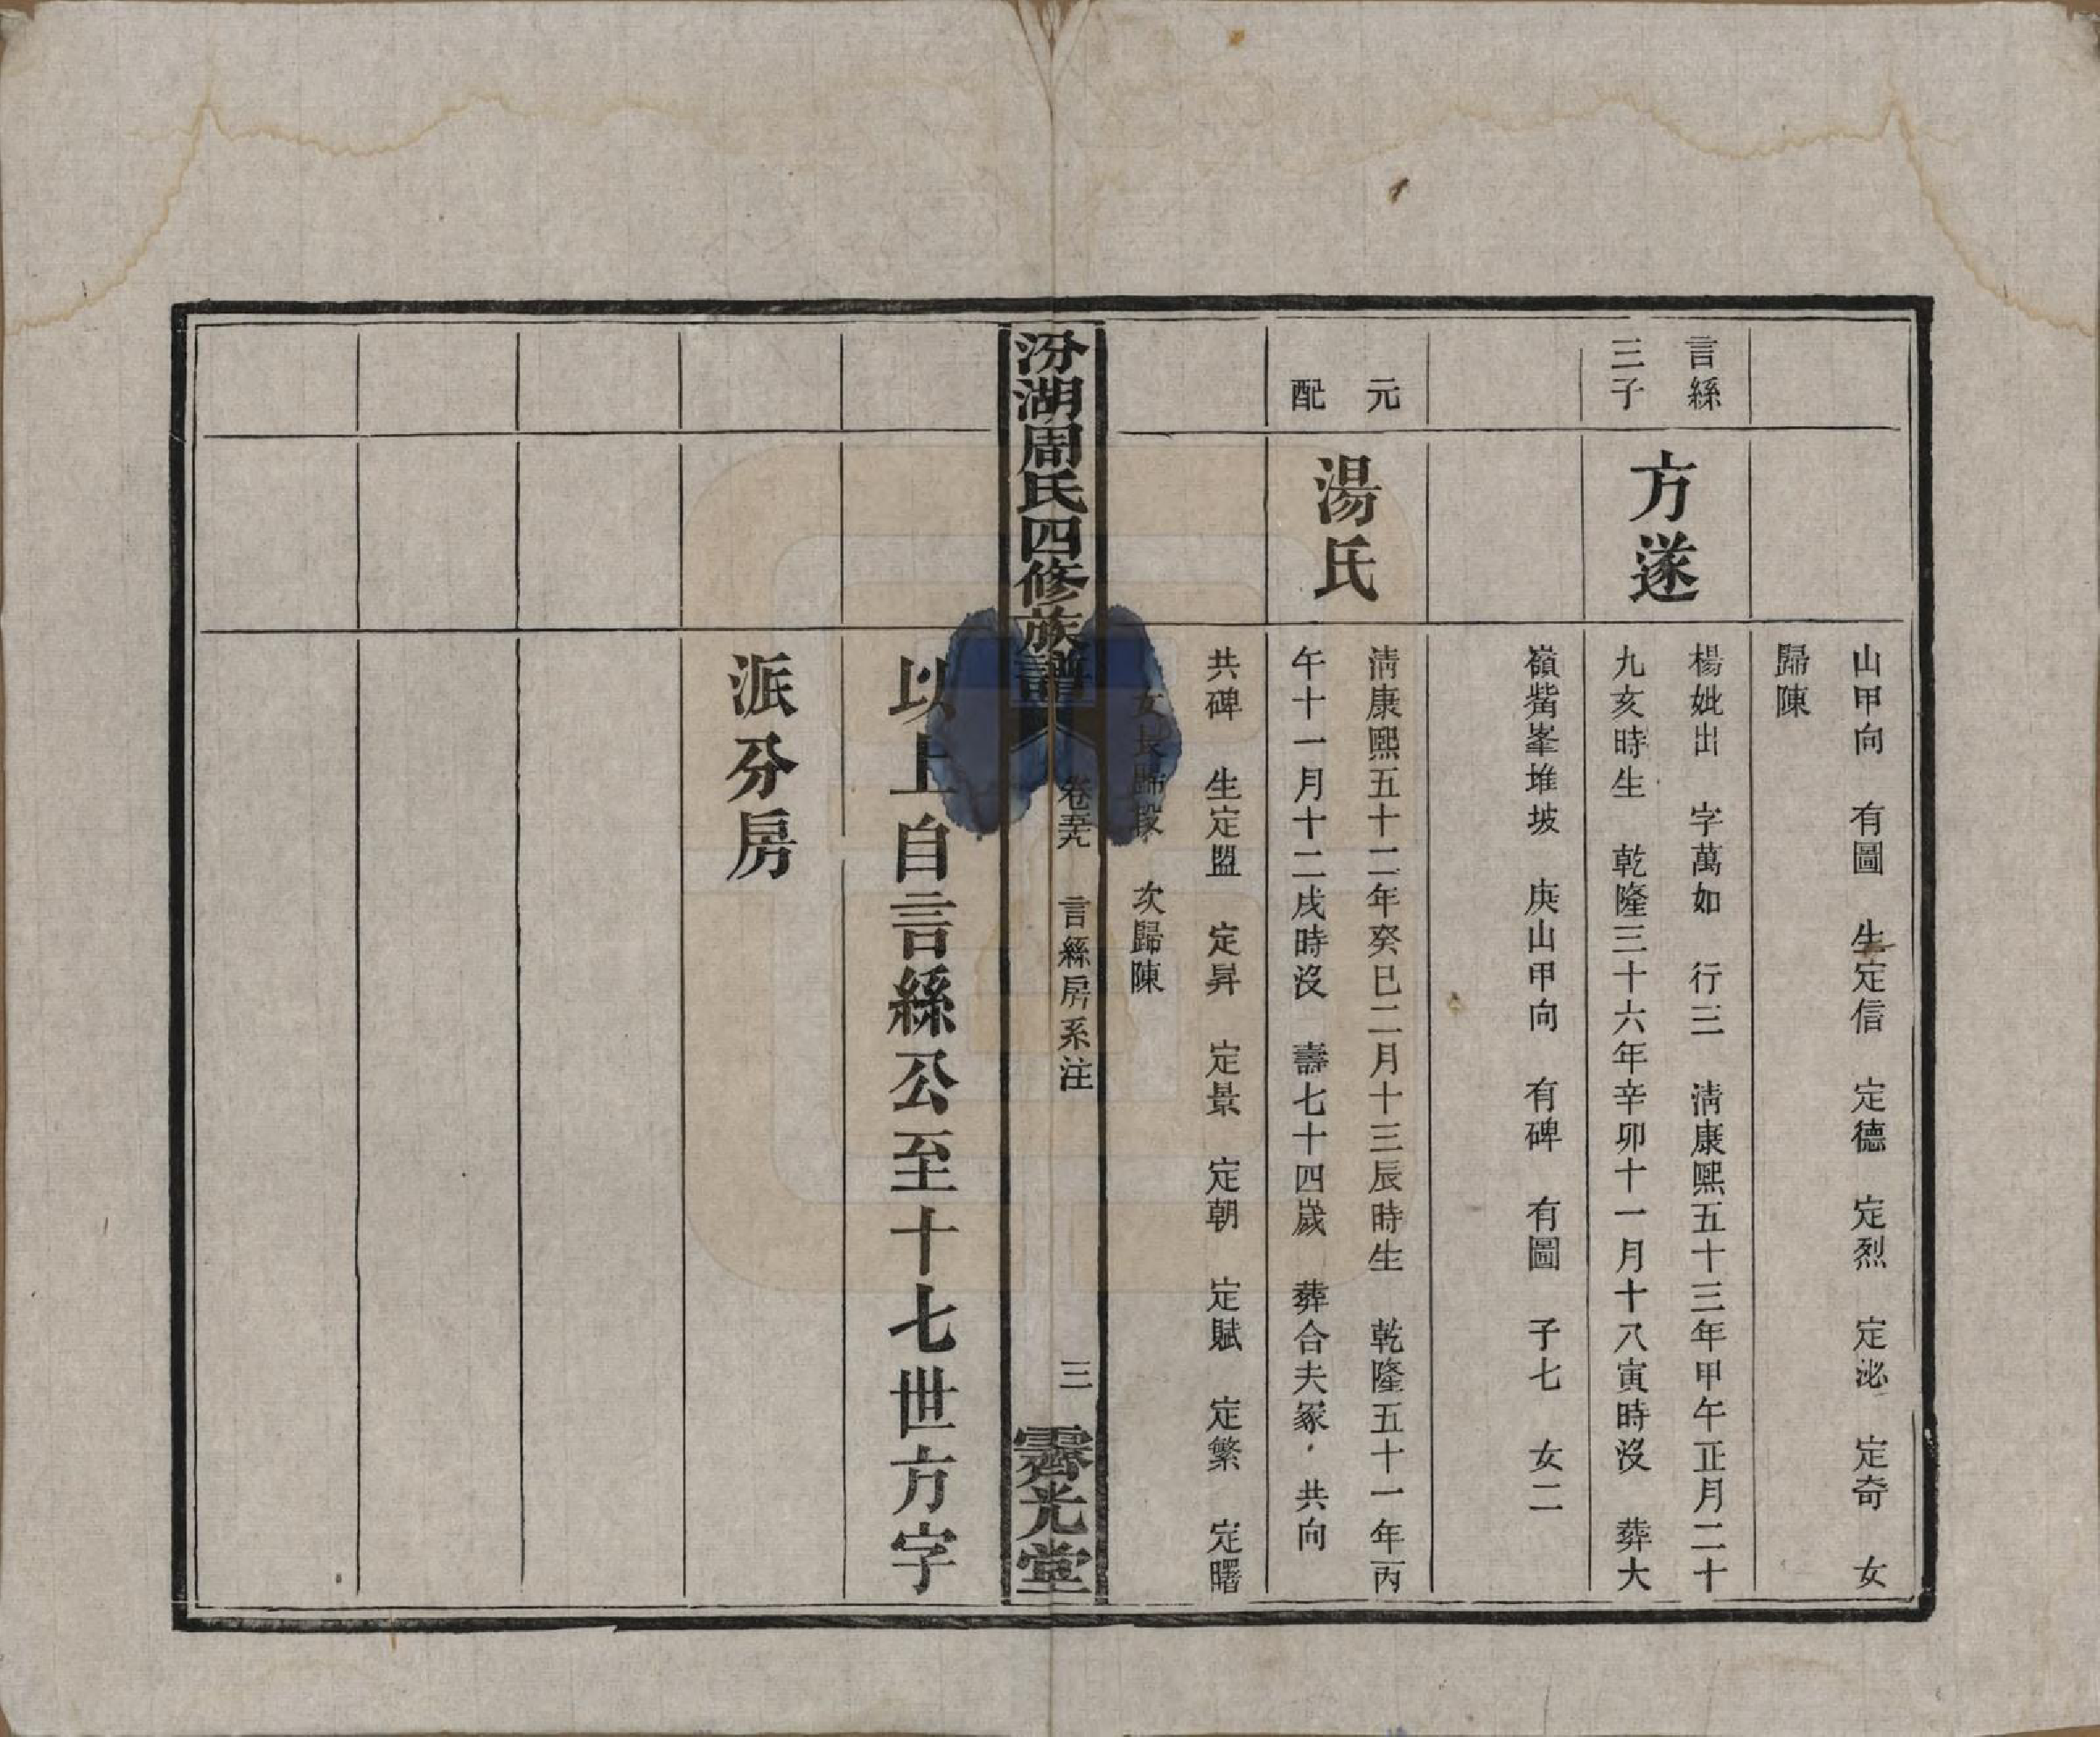 山甲向　有圖　生定信　定德　定烈　定泌　定奇　女
歸陳
言絲
三子
方遂
楊妣出　字萬如　行三　淸康熙五十三年甲午正月二十
九亥時生　乾隆三十六年辛卯十一月十八寅時沒　葬大
嶺觜峯堆坡　庚山甲向　有碑　有圖　子七　女二
元
配
湯氏
淸康熙五十二年癸巳二月十三辰時生　乾隆五十一年丙
午十一月十二戌時沒　壽七十四歲　葬合夫冢　共向
共碑　生定盟　定昇　定景　定朝　定賦　定繁　定曙
女長歸段　次歸陳
汾湖周氏四修族譜
卷五九　言絲房系注
三
霽光堂
以上自言絲公至十七世方字
派分房